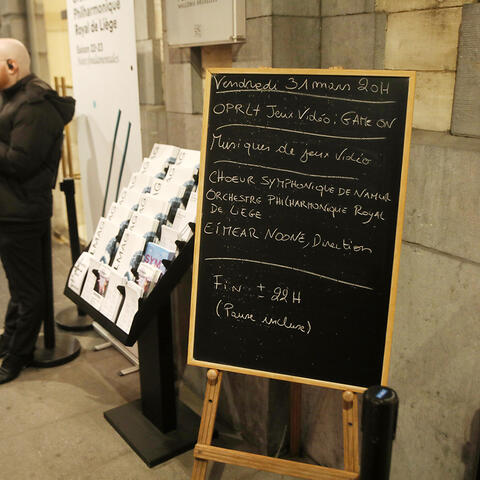 Philharmonique
Royal de Liège
Saison 22-23
WALLONIE BRUXELLES
Vendredi 31 mars 20H
OPRL+ Jeux Vidéo : GAME ON
Musiques de jeux vidéo
CHOEUR SYMPHONIQUE DE NAMUR
ORCHESTRE PHILHARMONIQUE ROYAL
DE LIÈGE
EÍMEAR NOONE, Direction
FIN ± 22H
(Pause incluse)